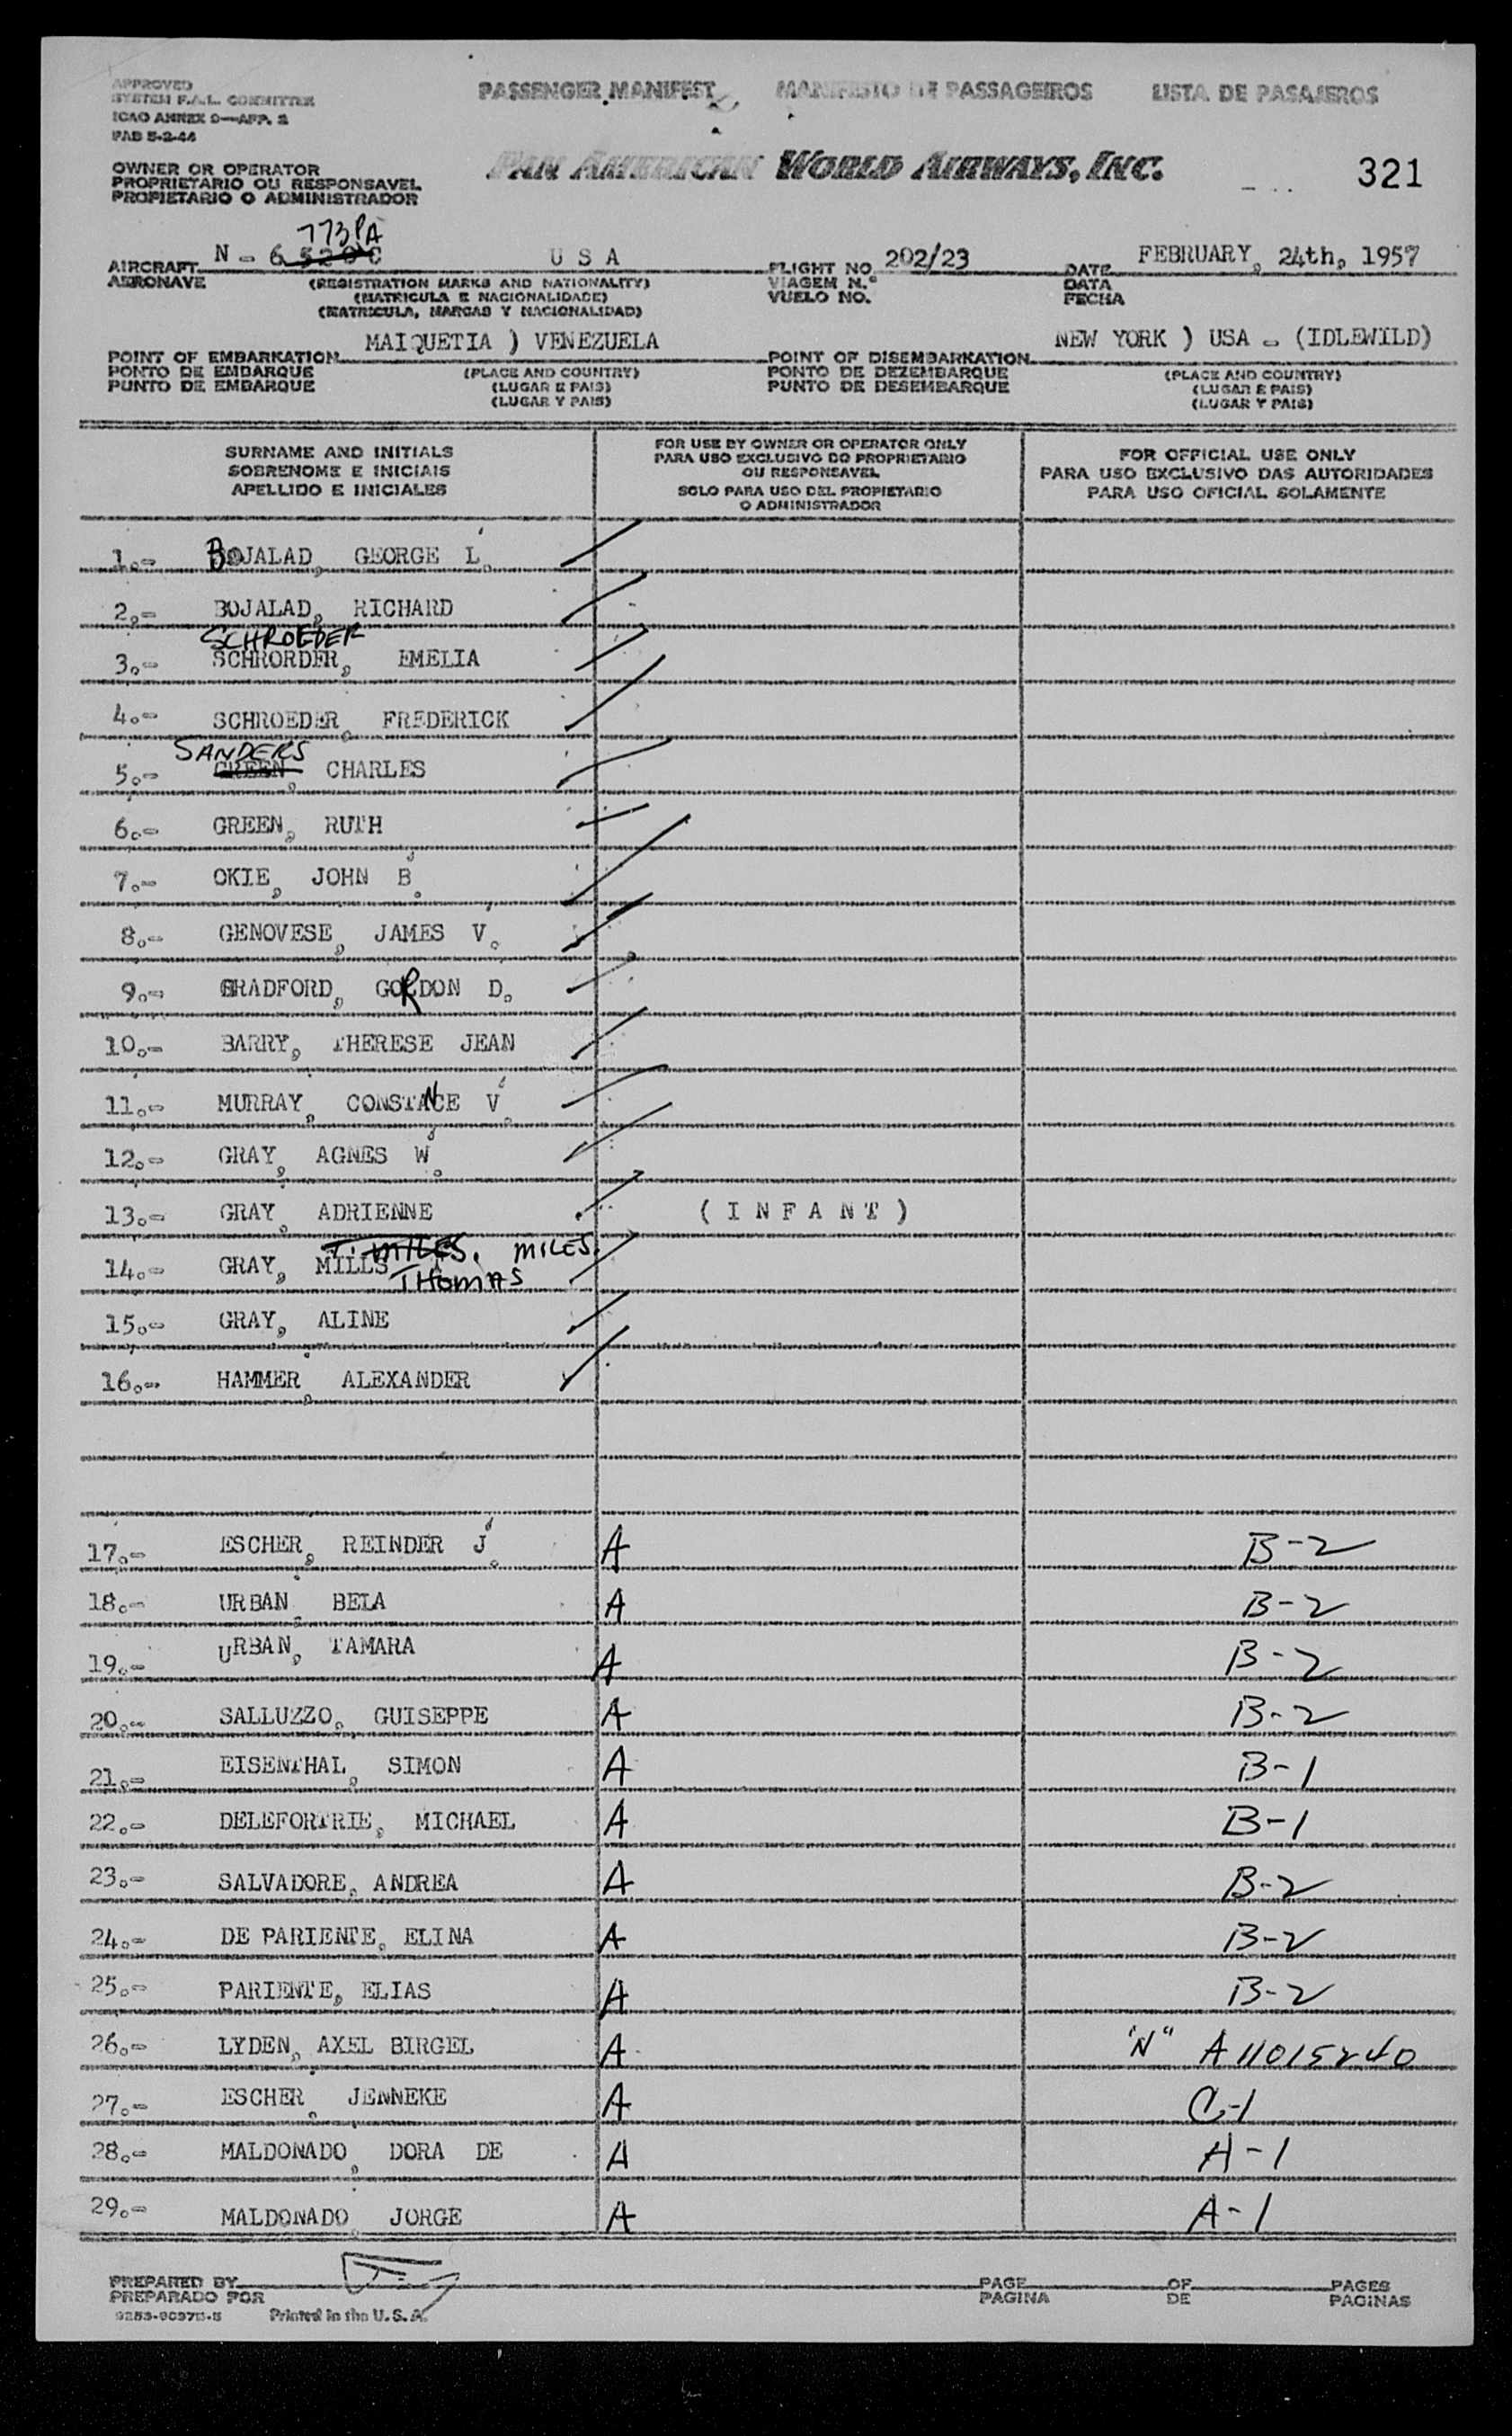 APPROVED
SYSTEM F.A.L. COMMITTEE
ICAO ANNEX 9—APP. 2
PAB 5-2-44
PASSENGER MANIFEST MANIFESTO DE PASSAGEIROS LISTA DE PASAJEROS
OWNER OR OPERATOR
PROPRIETARIO OU RESPONSAVEL
PROPIETARIO O ADMINISTRADOR
PAN AMERICAN WORLD AIRWAYS, INC.
321
773PA
AIRCRAFT N - 6520C U S A FLIGHT NO 202/23 DATE FEBRUARY, 24th, 1957
AERONAVE (REGISTRATION MARKS AND NATIONALITY) VIAGEM N.º DATA
(MATRICULA E NACIONALIDADE) VUELO NO. FECHA
(MATRICULA, MARCAS Y NACIONALIDAD)
POINT OF EMBARKATION MAIQUETIA ) VENEZUELA POINT OF DISEMBARKATION NEW YORK ) USA - (IDLEWILD)
PONTO DE EMBARQUE (PLACE AND COUNTRY) PONTO DE DEZEMBARQUE (PLACE AND COUNTRY)
PUNTO DE EMBARQUE (LUGAR E PAIS) PUNTO DE DESEMBARQUE (LUGAR E PAIS)
(LUGAR Y PAIS) (LUGAR Y PAIS)
SURNAME AND INITIALS
SOBRENOME E INICIAIS
APELLIDO E INICIALES
FOR USE BY OWNER OR OPERATOR ONLY
PARA USO EXCLUSIVO DO PROPRIETARIO
OU RESPONSAVEL
SOLO PARA USO DEL PROPIETARIO
O ADMINISTRADOR
FOR OFFICIAL USE ONLY
PARA USO EXCLUSIVO DAS AUTORIDADES
PARA USO OFICIAL SOLAMENTE
1.- BOJALAD, GEORGE L.
2.- BOJALAD, RICHARD
SCHROEDER
3.- SCHRORDER, EMELIA
4.- SCHROEDER, FREDERICK
SANDERS
5.- GREEN, CHARLES
6.- GREEN, RUTH
7.- OKIE, JOHN B.
8.- GENOVESE, JAMES V.
9.- BRADFORD, GORDON D.
10.- BARRY, THERESE JEAN
11.- MURRAY, CONSTANCE V.
12.- GRAY, AGNES W.
13.- GRAY, ADRIENNE ( I N F A N T )
T. MILES. MILES.
14.- GRAY, MILLS
THOMAS
15.- GRAY, ALINE
16.- HAMMER, ALEXANDER
17.- ESCHER, REINDER J. A B-2
18.- URBAN, BELA A B-2
19.- URBAN, TAMARA A B-2
20.- SALLUZZO, GUISEPPE A B-2
21.- EISENTHAL, SIMON A B-1
22.- DELEFORTRIE, MICHAEL A B-1
23.- SALVADORE, ANDREA A B-2
24.- DE PARIENTE, ELINA A B-2
25.- PARIENTE, ELIAS A B-2
26.- LYDEN, AXEL BIRGEL A "N" A 11015240
27.- ESCHER, JENNEKE A C-1
28.- MALDONADO, DORA DE A A-1
29.- MALDONADO, JORGE A A-1
PREPARED BY PAGE OF PAGES
PREPARADO POR PAGINA DE PAGINAS
Printed in the U. S. A.